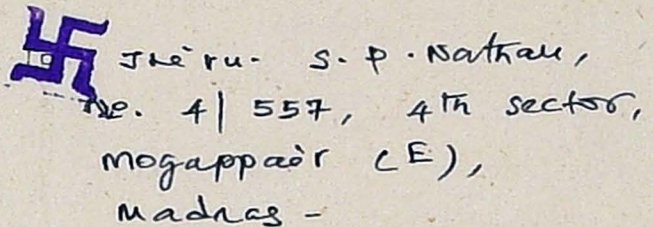 Thiru. S. P. Nathan,
No. 4/557, 4th sector,
Mogappair (E),
Madras -